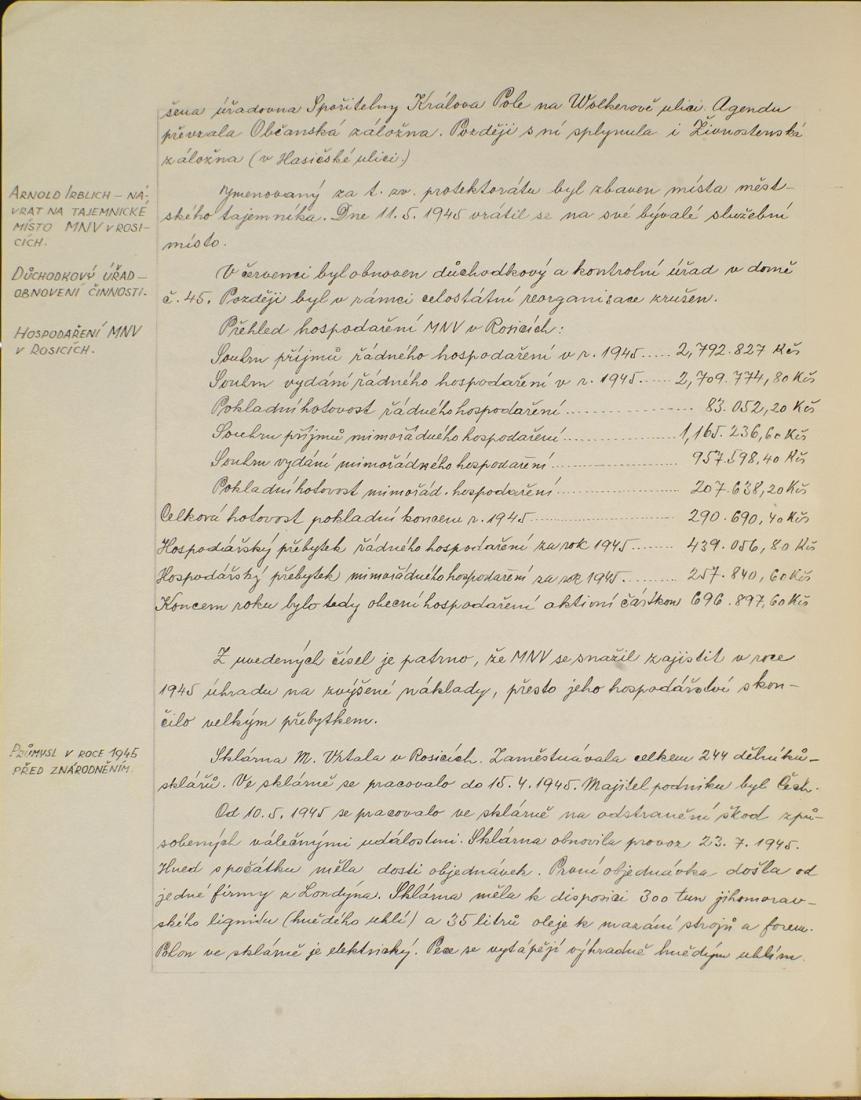 šena úřadovna Spořitelny Králova Pole na Wolkerově ulici. Agendu
převzala Občanská záložna. Později s ní splynula i Živnostenská
záložna (v Hasičské ulici.)
ARNOLD IRBLICH – NÁ-
VRAT NA TAJEMNICKÉ
MÍSTO MNV V ROSI-
CÍCH.
Jmenovaný za t. zv. protektorátu byl zbaven místa měst-
ského tajemníka. Dne 11. 5. 1945 vrátil se na své bývalé služební
místo.
DŮCHODKOVÝ ÚŘAD –
OBNOVENÍ ČINNOSTI.
V červenci byl obnoven důchodkový a kontrolní úřad v domě
č. 45. Později byl v rámci celostátní reorganisace zrušen.
HOSPODAŘENÍ MNV
V ROSICÍCH.
Přehled hospodaření MNV v Rosicích:
Souhrn příjmů řádného hospodaření v r. 1945 ..... 2,792.827 Kčs
Souhrn vydání řádného hospodaření v r. 1945 ..... 2,709.774,80 Kčs
Pokladní hotovost řádného hospodaření ..... 83.052,20 Kčs
Souhrn příjmů mimořádného hospodaření ..... 1,165.236,60 Kčs
Souhrn vydání mimořádného hospodaření ..... 957.598,40 Kčs
Pokladní hotovost mimořád. hospodaření ..... 207.638,20 Kčs
Celková hotovost pokladní koncem r. 1945 ..... 290.690,40 Kčs
Hospodářský přebytek řádného hospodaření za rok 1945 ..... 439.056,80 Kčs
Hospodářský přebytek mimořádného hospodaření za rok 1945 ..... 257.840,60 Kčs
Koncem roku bylo tedy obecní hospodaření aktivní částkou 696.897,60 Kčs
Z uvedených čísel je patrno, že MNV se snažil zajistit v roce
1945 úhradu na zvýšené náklady, přesto jeho hospodářství skon-
čilo velkým přebytkem.
PRŮMYSL V ROCE 1945
PŘED ZNÁRODNĚNÍM.
Sklárna M. Vrtala v Rosicích. Zaměstnávala celkem 244 dělníků –
sklářů. Ve sklárně se pracovalo do 15. 4. 1945. Majitel podniku byl Čech.
Od 10. 5. 1945 se pracovalo ve sklárně na odstranění škod způ-
sobených válečnými událostmi. Sklárna obnovila provoz 23. 7. 1945.
Hned s počátku měla dosti objednávek. První objednávka došla od
jedné firmy z Londýna. Sklárna měla k disposici 300 tun jihomorav-
ského lignitu (hnědého uhlí) a 35 litrů oleje k mazání strojů a forem.
Pohon ve sklárně je elektrický. Pece se vytápějí výhradně hnědým uhlím.